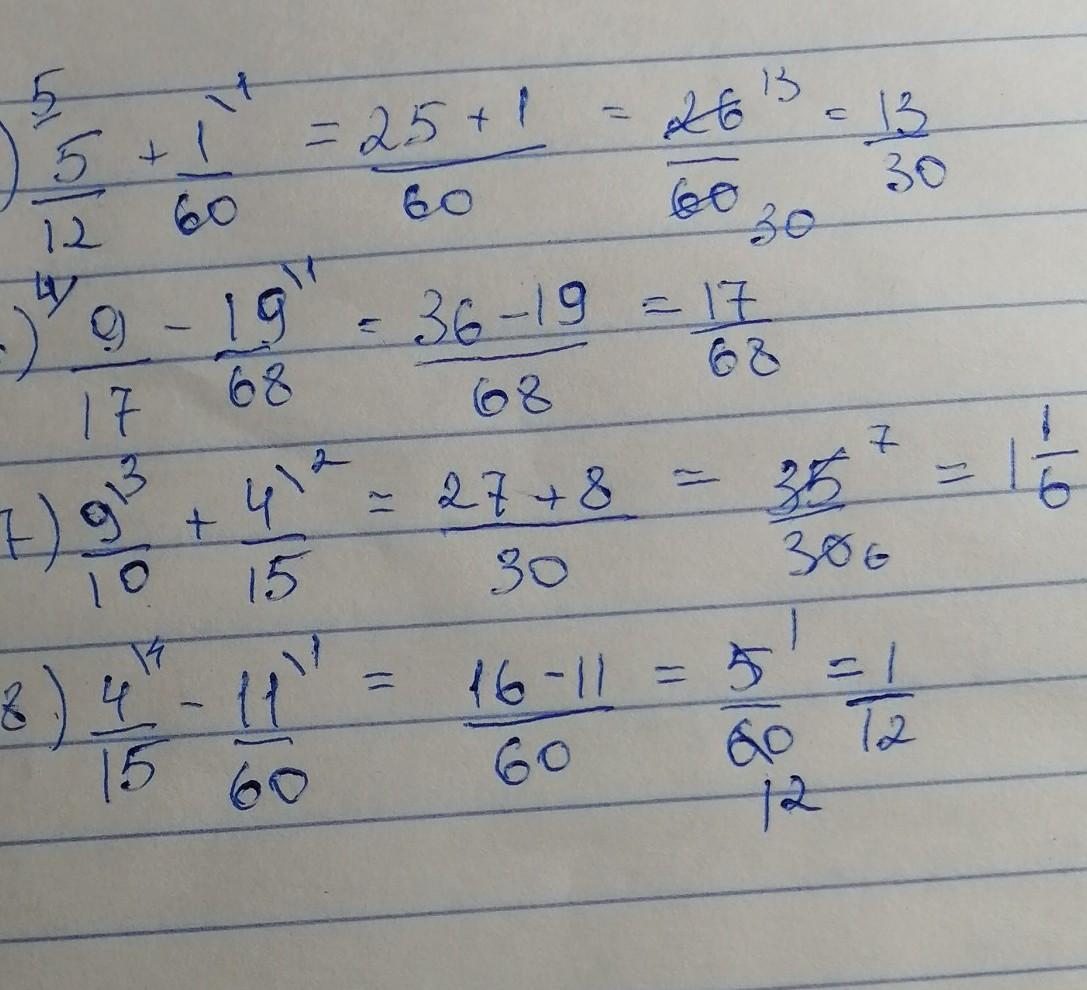 ) 5/12 \5 + 1/60 \1 = 25+1/60 = 26/60 13 30 = 13/30
.) 4/ 9/17 - 19/68 \1 = 36-19/68 = 17/68
7) 9/10 \3 + 4/15 \2 = 27+8/30 = 35/30 7 6 = 1 1/6
8) 4/15 \4 - 11/60 \1 = 16-11/60 = 5/60 1 12 = 1/12